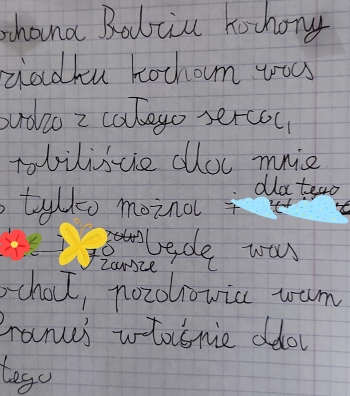 ochana Babciu kochony
ziadku kocham was
ardzo z całego serca,
robiliście dla mnie
tylko można
dla tego
będę was
zawsze
ochał, pozdrowia wam
Franuś właśnie dla
tego